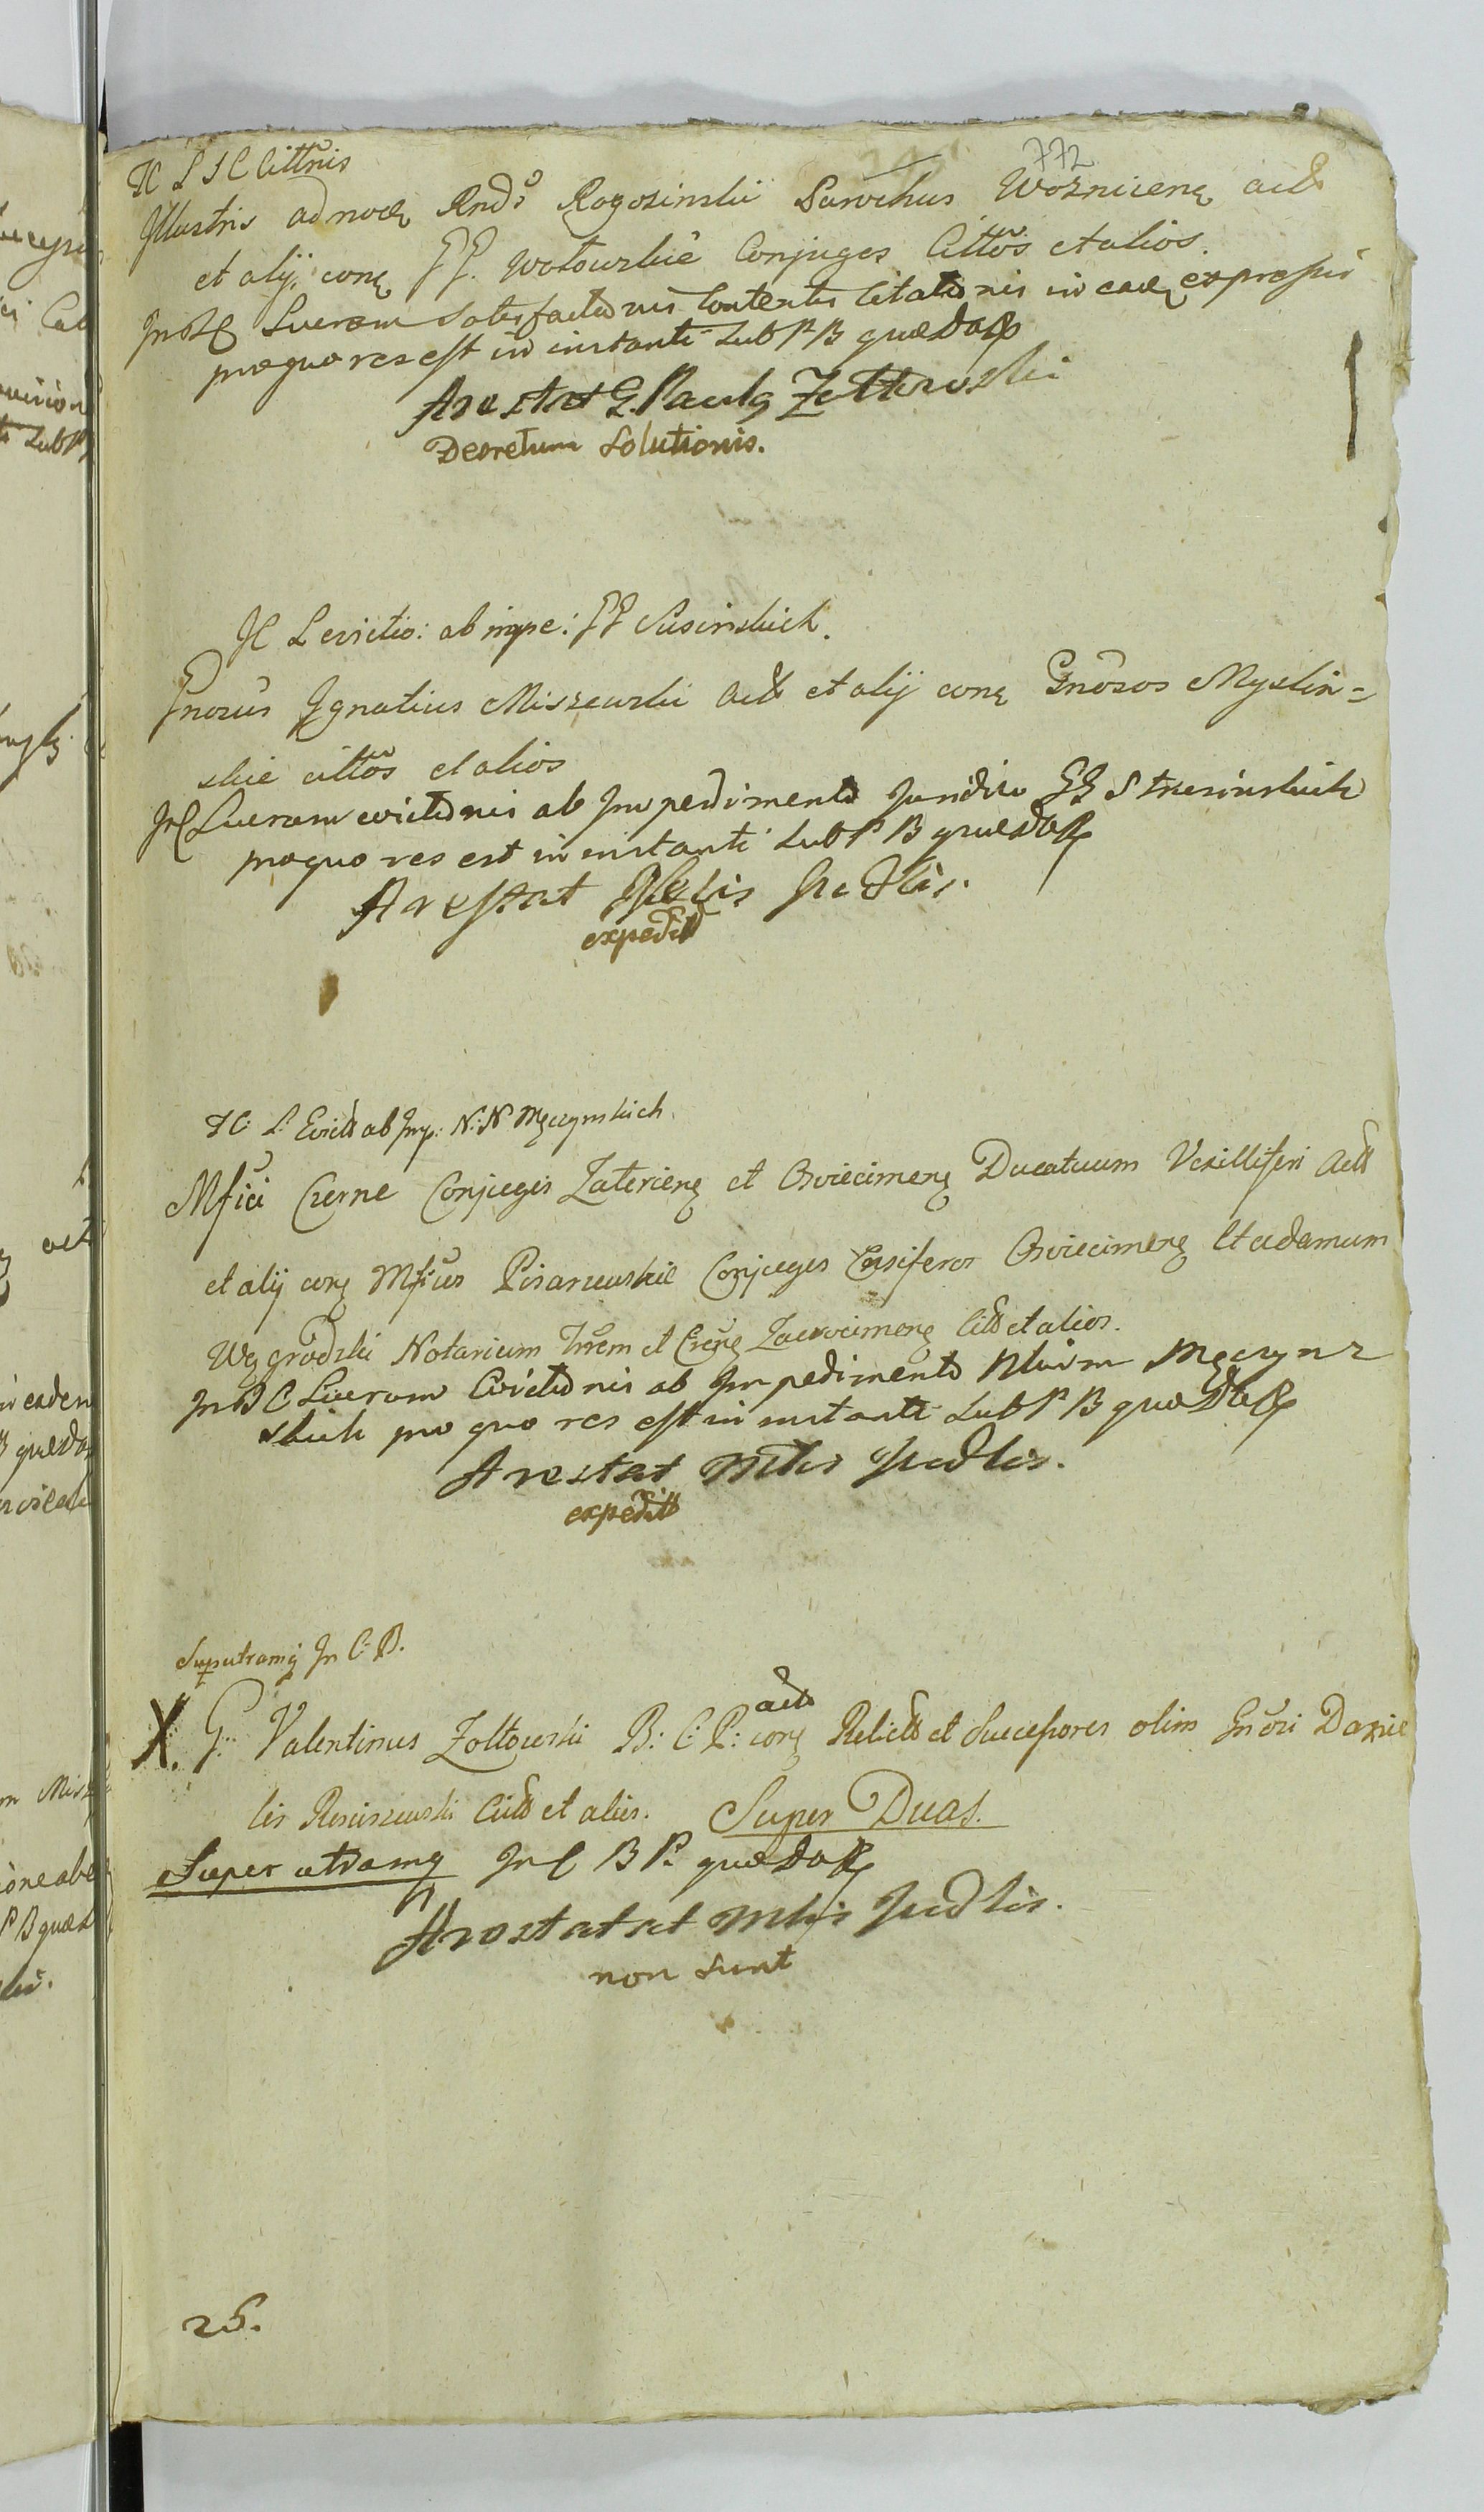 772
JC L S C Cittnis
Illustris adnodę Rnds Rogozinski Parochus Woznicenę act
et alij conę GG. Wołowskie Conjuges Cittos et alios.
In B C Lucram Satisfactionis Contentis Citationis in eadę expressis
pro quo res est in instanti Sub P B quædaß
Arestat G. Pauls Zołtowski
Decretum Solutionis.
JC L evictio: ab impe: GG Susinskich.
Gnosus Ignatius Miszewski act et alij conę Gnosos Myslin=
skie cittos et alios
In C Lucram evictionis ab Impedimento Juridico GG Strusinskich
pro quo res est in instanti Sub P B quædaß
Arestat Judlis.
expedit
JC: L: Evict ab Imp: N: N Męczynskich.
Mfici Czerne Conjuges Zatorienę et Osviecimenę Ducatuum Vexilliferi act
et alij conę Mficos Pisarzewskie Conjuges Ensiferos Osviecimenę Et adamum
Węgrodzki Notarium Trrem et Crenę Zacrocimenę Citt et alios.
In B C Lucram Evictionis ab Impedimento Nlium Męczynz
skich pro quo res est in instanti Sub P B quædaß
Arestat Mtis Judlis.
expedit
Superutramq In C: B.
act
X. G: Valentinus Zołtowski B: C: P: conę Relict et Successores olim Gnosi Danie
lis Rosciszewski Citt et alios. Super Duas.
Super utramq In C B P. quædaß
Arestat at Mtis Judlis.
non sunt
25.